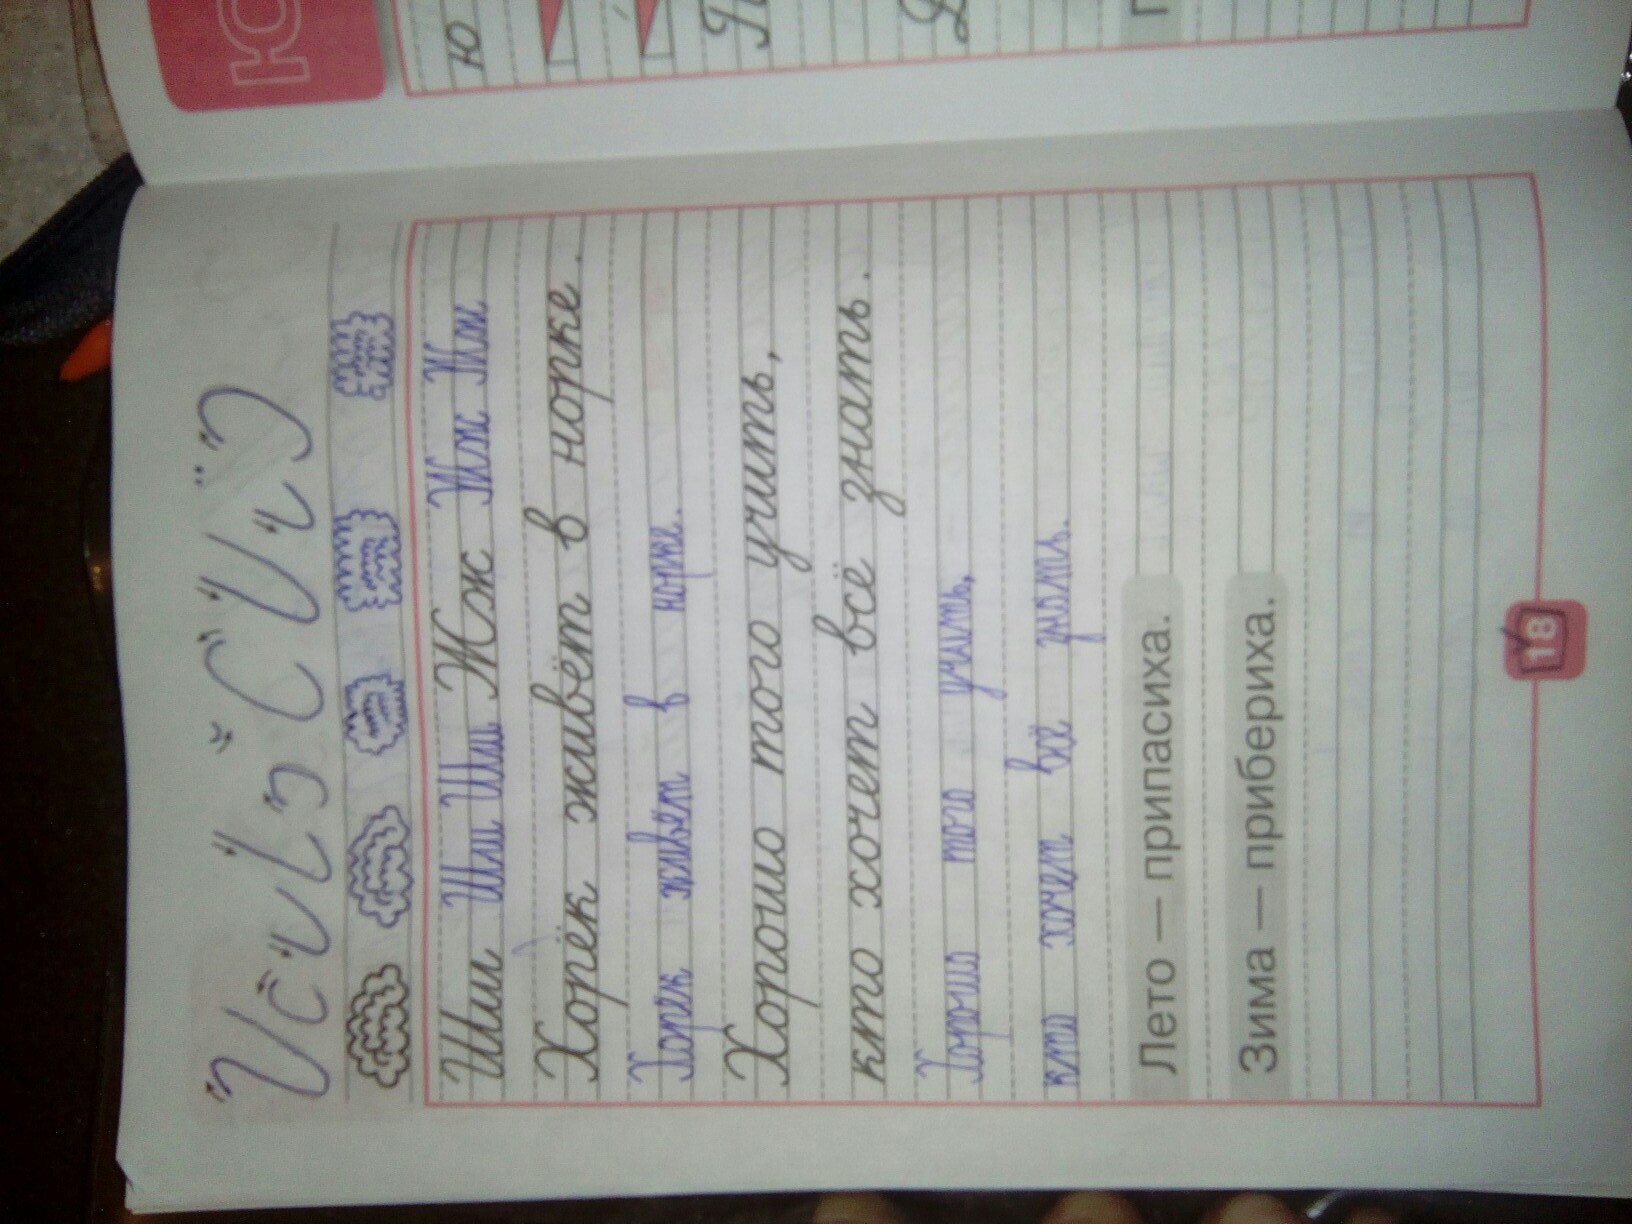 Ю
ю
Шш Шш Шш Жж Жж Жж
Хорёк живёт в норке.
Хорёк живёт в норке.
Хорошо того учить,
кто хочет всё знать.
Хорошо того учить,
кто хочет всё знать.
Лето — припасиха.
Зима — прибериха.
18